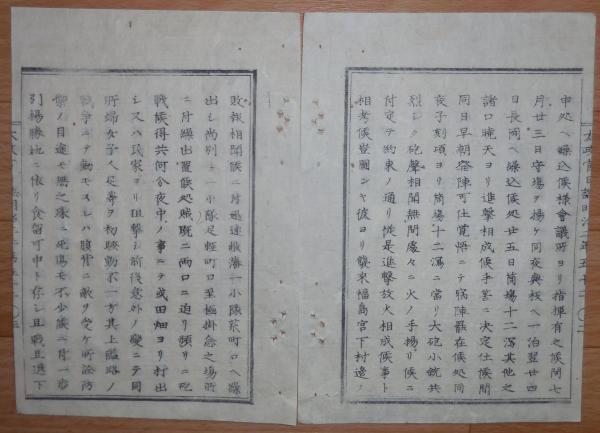 申処ヘ繰込候様会議所ヨリ指揮有之候間七
月廿三日守場ヲ揚ケ同夜與板ヘ一泊翌廿四
日長岡ヘ繰込候処廿五日筒場十二潟其他之
諸口曉天ヨリ進撃相成候手筈ニ決定仕候間
同日早朝發陣可仕覺悟ニテ宿陣罷在候処同
夜子刻頃ヨリ筒場十二潟ニ當リ大砲小銃共
烈シク砲聲相聞無間處々ニ火ノ手揚リ候ニ
付定テ約束ノ通リ従是進撃放火相成候事ト
相考候豈圖ンヤ彼ヨリ襲来福島宮下村邊ノ
敗報相聞候ニ付迅速救藩一小隊荒町口ヘ繰
出シ尚別ニ一小隊足軽町口至極掛念之場所
ニ付繰出置候処賊既ニ両口ニ迫リ頻リニ砲
戦候得共何分夜中ノ事ニテ或田畑ヨリ打出
シ又ハ民家ヨリ狙撃シ前後意外ノ變ニテ同
所婦女子人足等ヲ初騒動不一方其上臨路ノ
戦争ニテ動モスレハ腹背ニ敵ヲ受ケ所詮防
禦ノ目途モ無之殊ニ死傷モ不少候ニ付一歩
引揚勝地ニ依リ食留可申ト存シ且戦且退下